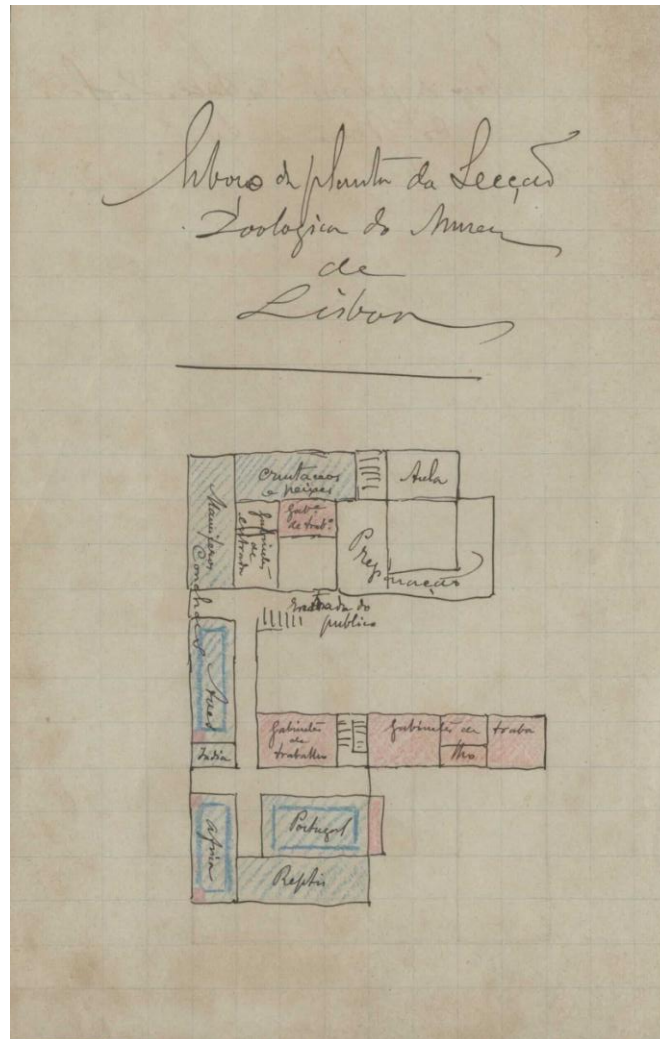 Esboço da planta da Secção
Zoologica do Museu
de
Lisboa
Crustaceos
e peixes
Aula
Mamiferos
Gabinetes
de
entrada
Gabe.
de trabo.
Preparação
Conchas
e Aves
Entrada do
publico
India
Gabinetes
de
trabalho
Gabinetes de traba
lho
Africa
Portugal
Reptis